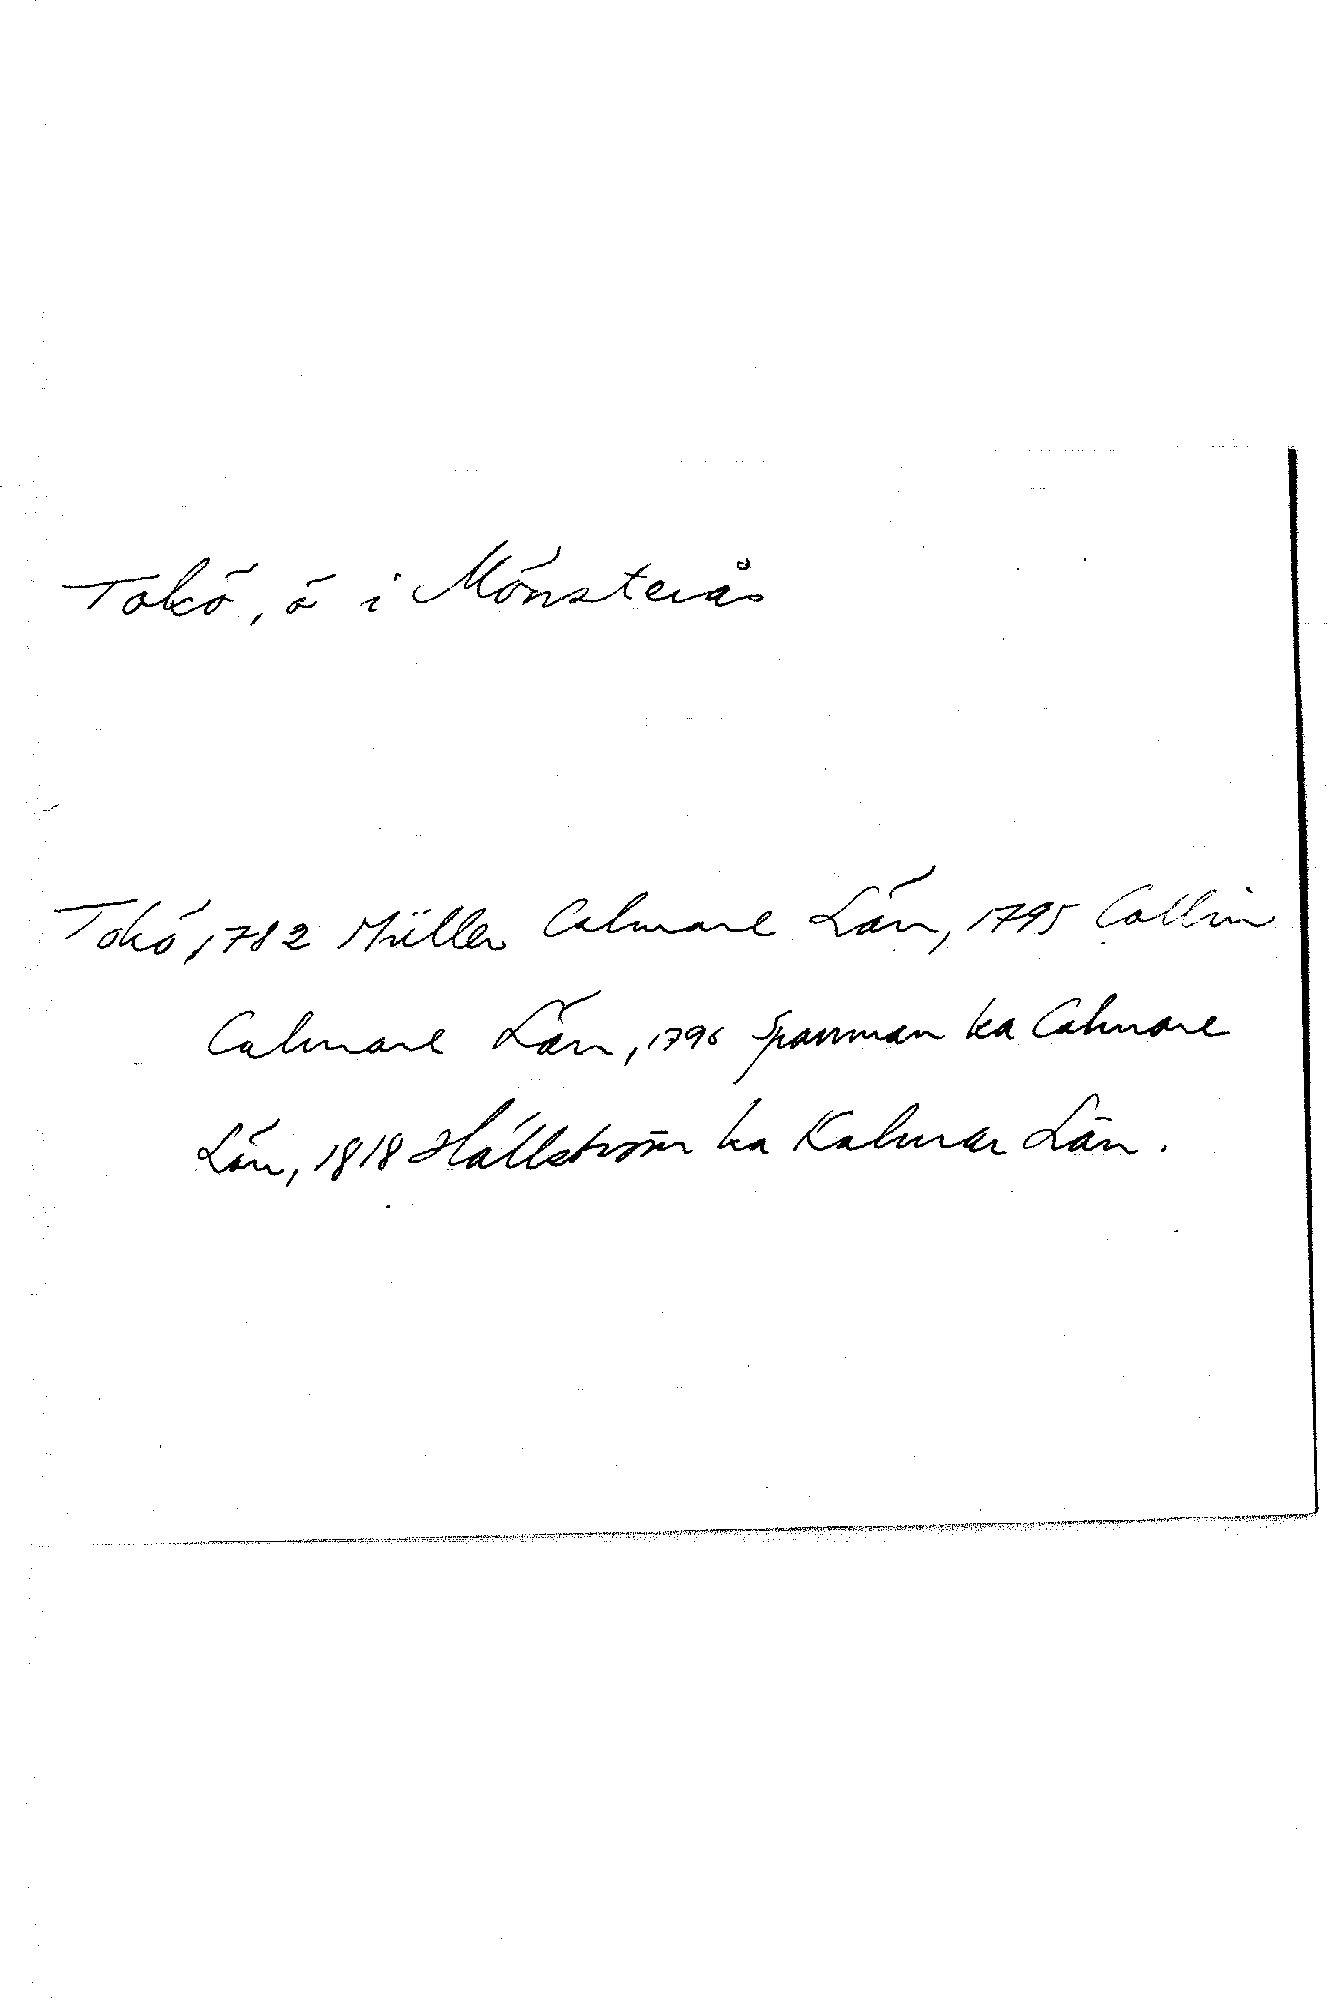 Tokö, ö i Mönsterås
Tokö, 1782 Müller Calmare Län, 1795 Collin
Calmare Län, 1796 Sparrman ka Calmare
Län, 1818 Hällström ka Kalmar Län.